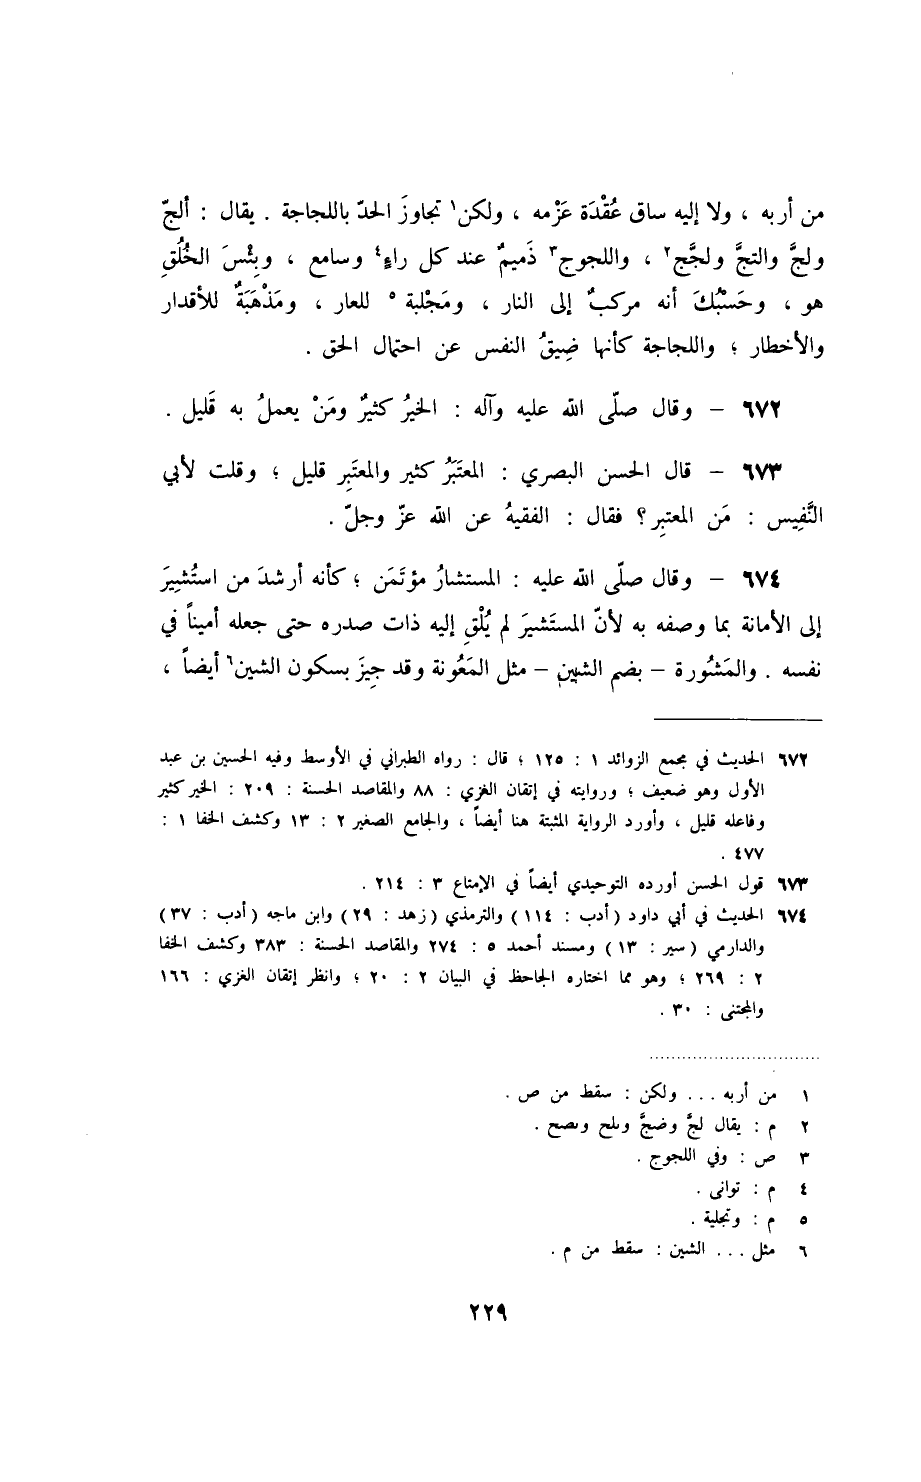 من أربه ، ولا إليه ساق عُقْدَة عَزْمه ، ولكن١ تجاوزَ الحدّ باللجاجة . يقال : ألجّ
ولجَّ والتجَّ ولجَّج٢ ، واللجوج٣ ذَميمٌ عند كل راءٍ٤ وسامع ، وبِئْسَ الخُلُقِ
هو ، وحَسْبُكَ أنه مركبٌ إلى النار ، ومَجْلبة٥ للعار ، ومَذْهَبَةٌ للأقدار
والأخطار ؛ واللجاجة كأنها ضِيقُ النفس عن احتمال الحق .
٦٧٢ – وقال صلّى الله عليه وآله : الخيرُ كثيرٌ ومَنْ يعملُ به قَليل .
٦٧٣ – قال الحسن البصري : المعتَبَرُ كثير والمعتَبِر قليل ؛ وقلت لأبي
النَّفِيس : مَن المعتبِر؟ فقال : الفقيهُ عن الله عزّ وجلّ .
٦٧٤ – وقال صلّى الله عليه : المستشارُ مؤتَمَن ؛ كأنه أرشدَ من استُشِيرَ
إلى الأمانة بما وصفه به لأنّ المستَشيرَ لم يُلْقِ إليه ذات صدره حتى جعله أميناً في
نفسه . والمَشُورة – بضم الشين – مثل المَعُونة وقد جِيزَ بسكون الشين٦ أيضاً ،
٦٧٢ الحديث في مجمع الزوائد ١ : ١٢٥ ؛ قال : رواه الطبراني في الأوسط وفيه الحسين بن عبد
الأول وهو ضعيف ؛ وروايته في إتقان الغزي : ٨٨ والمقاصد الحسنة : ٢٠٩ : الخير كثير
وفاعله قليل ، وأورد الرواية المثبتة هنا أيضاً ، والجامع الصغير ٢ : ١٣ وكشف الخفا ١ :
٤٧٧ .
٦٧٣ قول الحسن أورده التوحيدي أيضاً في الإمتاع ٣ : ٢١٤ .
٦٧٤ الحديث في أبي داود (أدب : ١١٤) والترمذي (زهد : ٢٩) وابن ماجه (أدب : ٣٧)
والدارمي (سير : ١٣) ومسند أحمد ٥ : ٢٧٤ والمقاصد الحسنة : ٣٨٣ وكشف الخفا
٢ : ٢٦٩ ؛ وهو مما اختاره الجاحظ في البيان ٢ : ٢٠ ؛ وانظر إتقان الغزي : ١٦٦
والمجتنى : ٣٠ .
١ من أربه ... ولكن : سقط من ص .
٢ م : يقال لجَّ وضجَّ
٣ ص : وفي اللجوج .
٤ م : توانى .
٥ م : وتجلية .
٦ مثل ... الشين : سقط من م .
٢٢٩